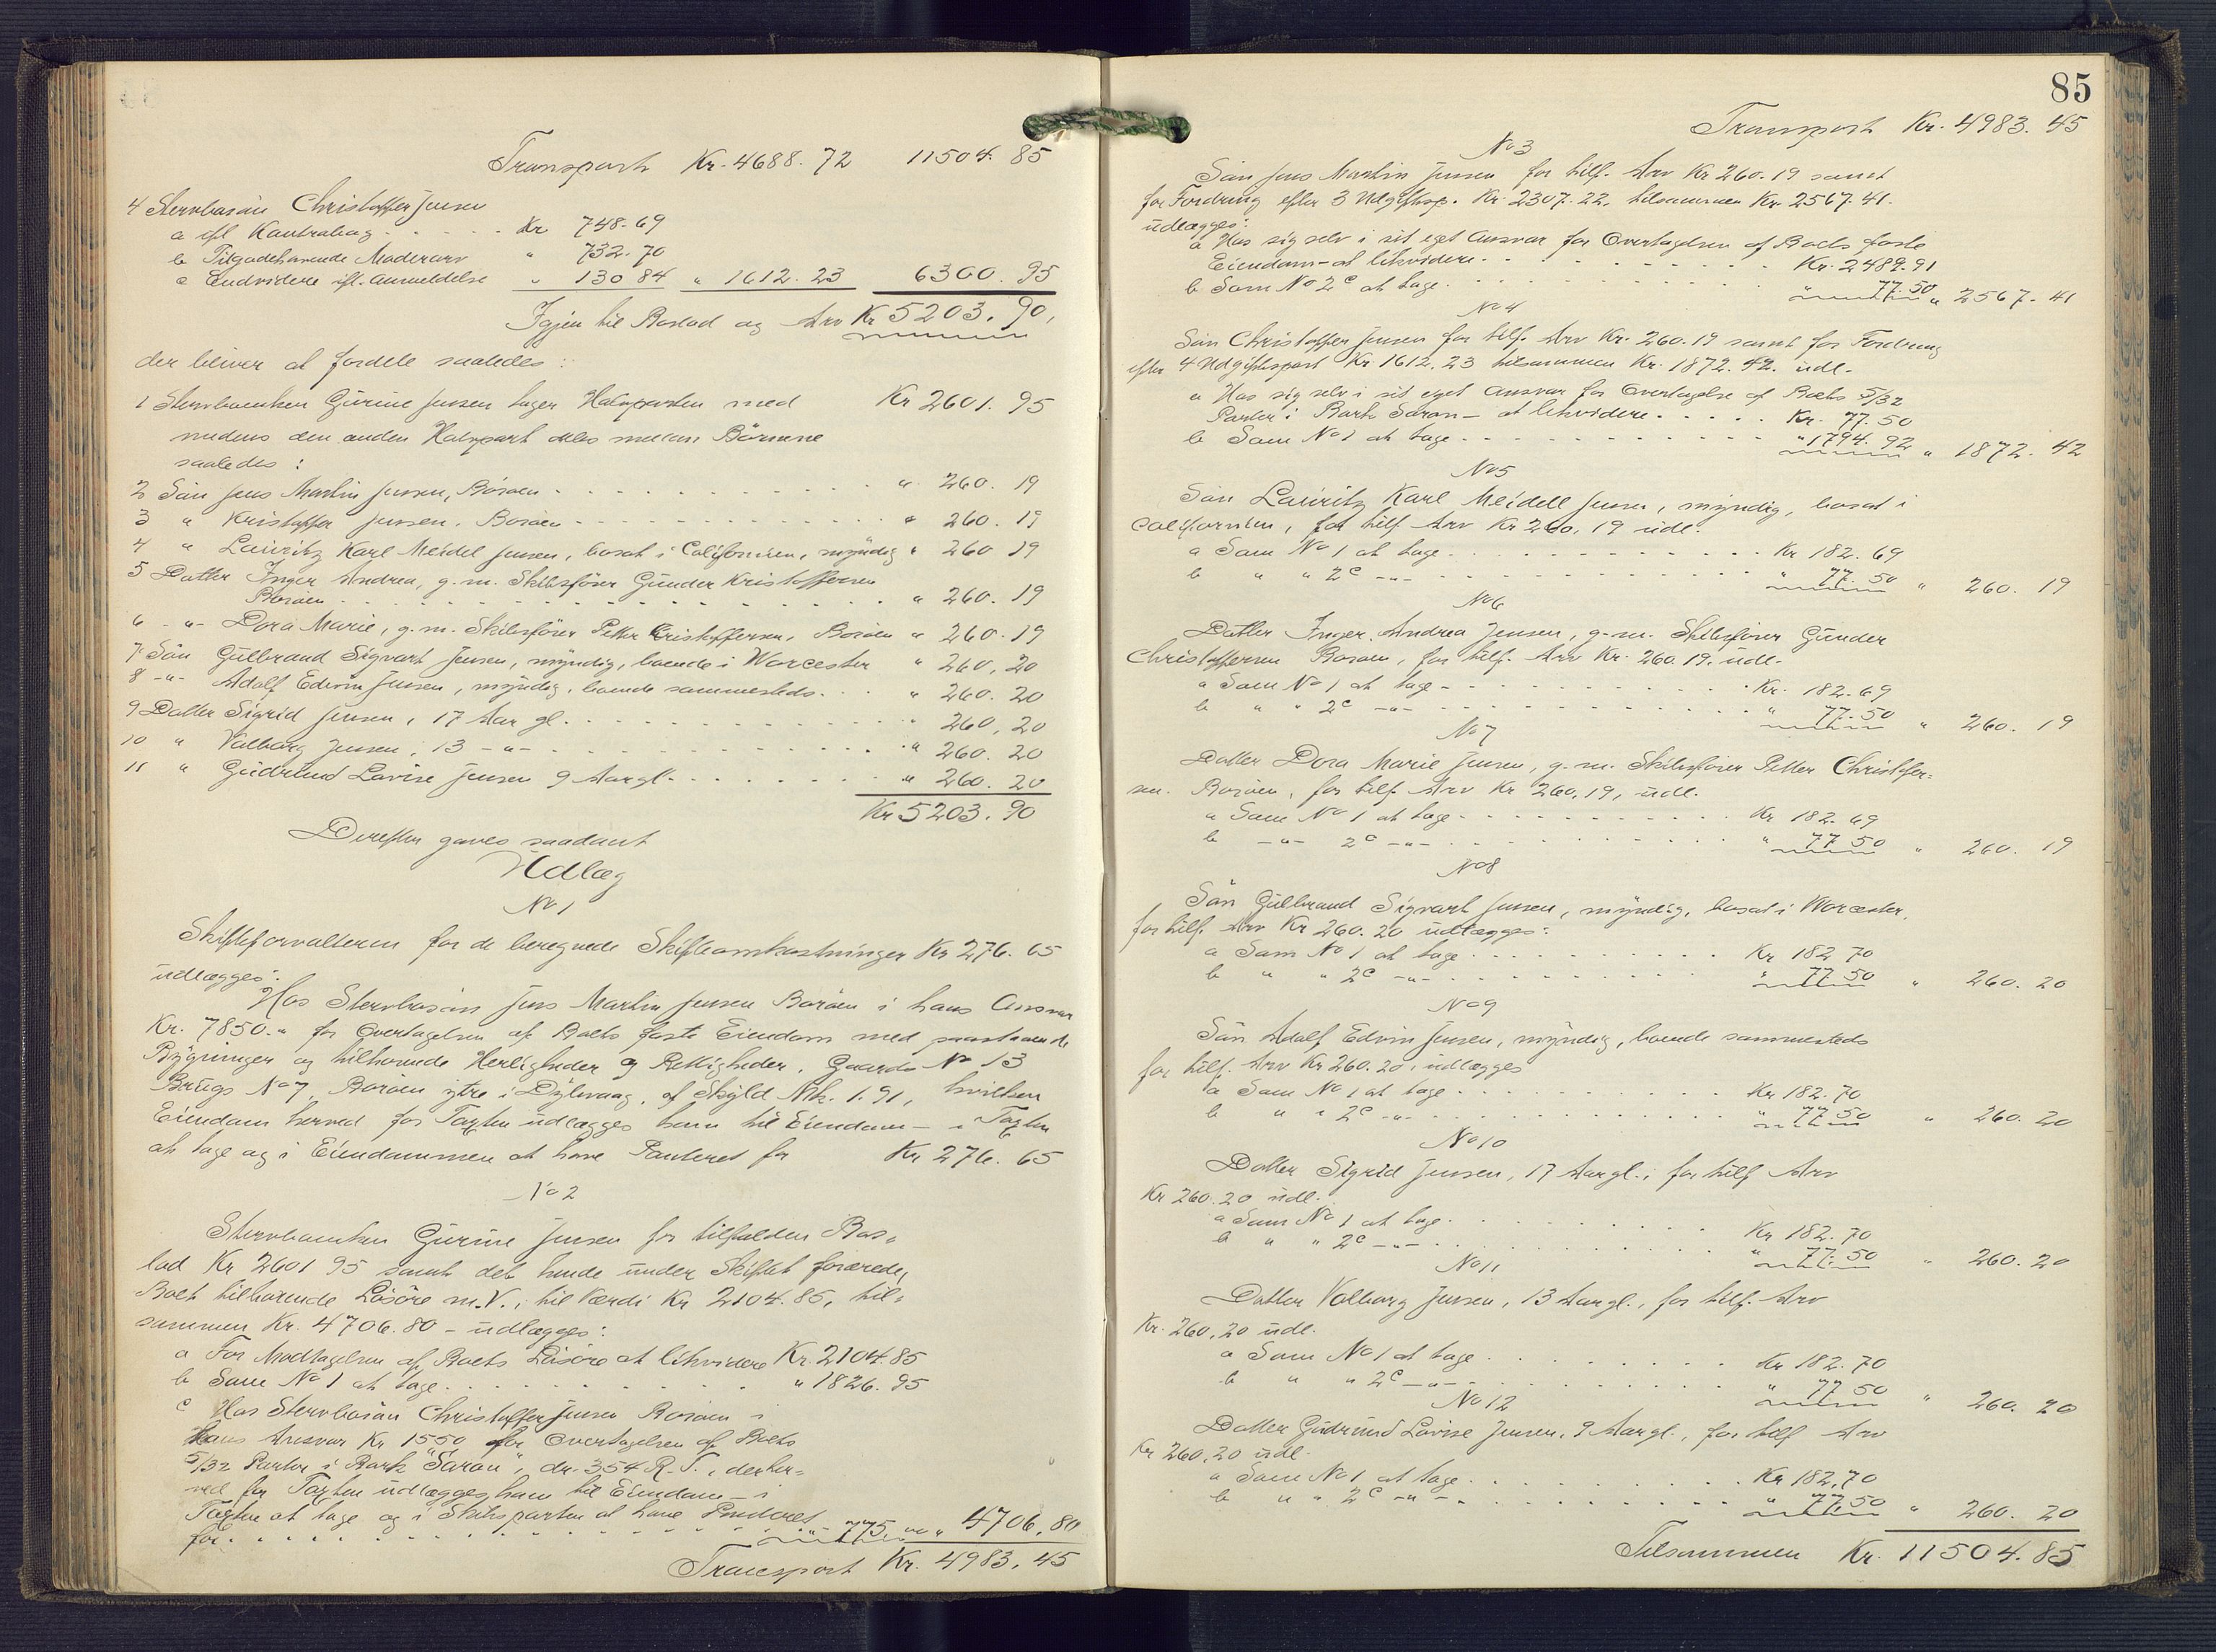 Transport Kr. 4688. 72 11504. 85
4 Stervbosøn Christoffer Jensen
a ifl Kontrabog . . . . . Kr 748. 69
b Tilgodehavende Moderarv " 732. 70
c Endvidere ifl. Anmeldelse " 130 84 " 1612. 23 6300. 95
Igjen til Boslod og Arv Kr 5203. 90,
der bliver at fordele saaledes :
1 Stervboenken Gurine Jensen tager Halvparten med Kr 2601. 95
medens den anden Halvpart deles mellem Börnene
saaledes :
2 Sön Jens Martin Jensen, Borøen . . . . . . . . . . . " 260. 19
3 " Kristoffer Jensen, Borøen . . . . . . . . . . . " 260. 19
4 " Lauritz Karl Meidel Jensen, bosat i Californien, myndig " 260 19
5 Datter Inger Andrea, g. m. Skibsfører Gunder Kristoffersen
Borøen . . . . . . . . . . . . . . . " 260. 19
6 -"- Dora Marie, g. m. Skibsfører Petter Cristoffersen, Borøen " 260. 19
7 Sön Gulbrand Sigvart Jensen, myndig, boende i Worcester " 260, 20
8 -"- Adolf Edvin Jensen, myndig, boende sammesteds . . . " 260. 20
9 Datter Sigrid Jensen, 17 Aar gl. . . . . . . . . . . " 260, 20
10 " Valborg Jensen, 13 -"- . . . . . . . . . . . " 260. 20
11 " Gudrund Lovise Jensen 9 Aar gl. . . . . . . . " 260. 20
Kr 5203. 90
Derefter gaves saadant
Udlæg
No 1
Skifteforvalteren for de beregnede Skifteomkostninger Kr 276. 65
udlægges:
Hos Stervbosøn Jens Martin Jensen Borøen i hans Ansvar
Kr. 7850. " for Overtagelsen af Boets faste Eiendom med paastaaende
Bygninger og tilhørende Herligheder og Rettigheder, Gaards No 13
Brugs No 7, Borøen ytre i Dybvaag, af Skyld Mk. 1. 91, hvilken
Eiendom herved for Taxten udlægges ham til Eiendom - i Taxten
at tage og i Eiendommen at have Panteret for Kr 276. 65
No 2
Stervboenken Gurine Jensen for tilfalden Bos-
lod Kr 2601 95 samt det hende under Skiftet forærede,
Boet tilhørende Løsøre m. V., til Værdi Kr 2104. 85, til-
sammen Kr. 4706. 80 - udlægges:
a For Modtagelsen af Boets Løsøre at likvidere Kr. 2104. 85
b Som No 1 at tage . . . . . . . . . . " 1826. 95
c Hos Stervbosøn Christoffer Jensen Borøen i
hans Ansvar Kr 1550 for Overtagelsen af Boets
5/32 Parter i Bark "Saron", dr. 354 R. T., der her-
ved for Taxten udlægges ham til Eiendom - i
Taxten at tage og i Skibsparten at have Panteret
for . . . . . . . . . . . . . . . . " 775. " " 4706, 80
Transport Kr. 4983, 45
85
Transport Kr. 4983. 45
No 3
Sön Jens Martin Jensen for tilf. Arv Kr 260. 19 samt
for Fordring efter 3 Udgiftsp. Kr. 2307. 22, tilsammen Kr 2567. 41.
udlægges:
a Hos sig selv i sit eget Ansvar for Overtagelsen af Boets faste
Eiendom - at likvidere . . . . . . . . . Kr. 2489. 91
b Som No 2 c at tage . . . . . . . . . . " 77. 50 " 2567. 41
No 4
Sön Christoffer Jensen for tilf. Arv Kr. 260. 19 samt for Fordring
efter 4 Udgiftspost Kr. 1612. 23 tilsammen Kr. 1872. 42. udl.
a Hos sig selv i sit eget Ansvar for Overtagelse af Boets 5/32
Parter i Bark Saron - at likvidere . . . . . Kr. 77. 50
b Som No 1 at tage . . . . . . . . . . . " 1794. 92 " 1872. 42
No 5
Sön Lauritz Karl Meidell Jensen, myndig, bosat i
Californien, for tilf. Arv Kr 260. 19 udl.
a Som No 1 at tage . . . . . . . . . . . Kr 182. 69
b " " 2 c -"- . . . . . . . . . . . " 77. 50 " 260. 19
No 6
Datter Inger Andrea Jensen, g. m. Skibsfører Gunder
Christoffersen Borøen, for tilf. Arv Kr. 260. 19. udl.
a Som No 1 at tage - . . . . . . . . . . . Kr. 182. 69
b " " 2 c -"- . . . . . . . . . . . " 77. 50 " 260. 19
No 7
Datter Dora Marie Jensen, g. m. Skibsfører Petter Christoffer-
sen. Borøen, for tilf. Arv Kr 260, 19, udl.
a Som No 1 at tage . . . . . . . . . . . Kr 182. 69
b -"- 2 c -"- . . . . . . . . . . . " 77 50 " 260. 19
No 8
Sön Gulbrand Sigvart Jensen, myndig, bosat i Worcester,
for tilf. Arv Kr 260. 20 udlægges:
a Som No 1 at tage . . . . . . . . . . Kr 182 70
b " " 2 c -"- . . . . . . . . . . " 77 50 " 260. 20
No 9
Sön Adolf Edvin Jensen, myndig, boende sammesteds
for tilf. Arv Kr 260. 20, udlægges
a Som No 1 at tage . . . . . . . . . . Kr 182. 70
b " " 2 c -"- . . . . . . . . . . " 77 50 " 260. 20
No 10
Datter Sigrid Jensen, 17 Aar gl., for tilf Arv
Kr 260. 20 udl.
a Som No 1 at tage . . . . . . . . . . Kr 182. 70
b " " 2 c -"- . . . . . . . . . . " 77. 50 " 260. 20
No 11
Datter Valborg Jensen, 13 Aar gl., for tilf. Arv
Kr. 260, 20 udl.
a Som No 1 at tage . . . . . . . . . Kr 182. 70
b " " 2 c -"- . . . . . . . . . . " 77 50 " 260. 20
No 12
Datter Gudrund Lovise Jensen, 9 Aar gl., for tilf Arv
Kr 260, 20 udl.
a Som No 1 at tage . . . . . . . . . . Kr 182, 70
b " " 2 c -"- . . . . . . . . . . " 77. 50 " 260. 20
Tilsammen Kr. 11504. 85